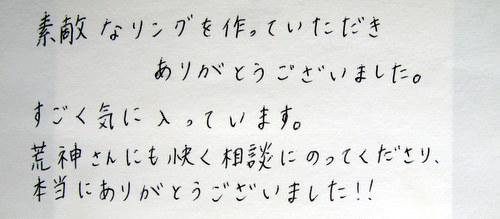 素敵なリングを作っていただき
ありがとうございました。
すごく気に入っています。
荒神さんにも快く相談にのってくださり、
本当にありがとうございました!!